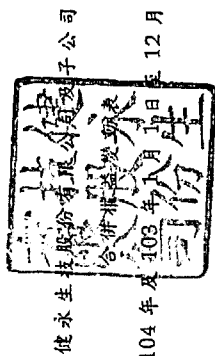 健永生技股份有限公司及子公司
合併權益變動表
104 年及 103 年 1 月 1 日至 12 月